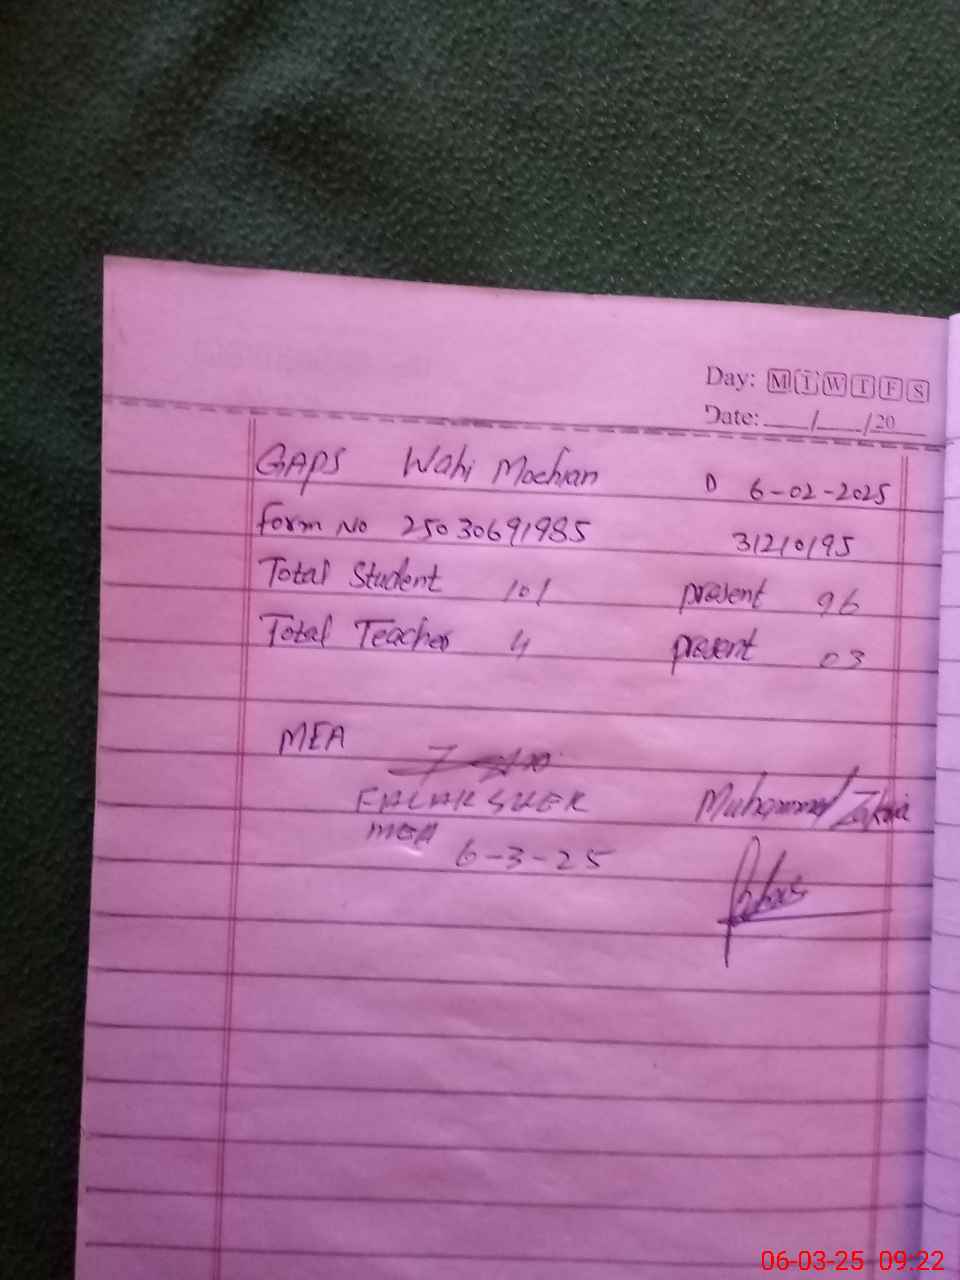 Day: M T W T F S
Date: ___/___/20___
GAPS Wahi Mochian D 6-02-2025
Form No 25030691985 31210195
Total Student 101 present 96
Total Teacher 4 present 03
MEA
FALAK SHER Muhammad Zakria
MEA
6-3-25
06-03-25 09:22